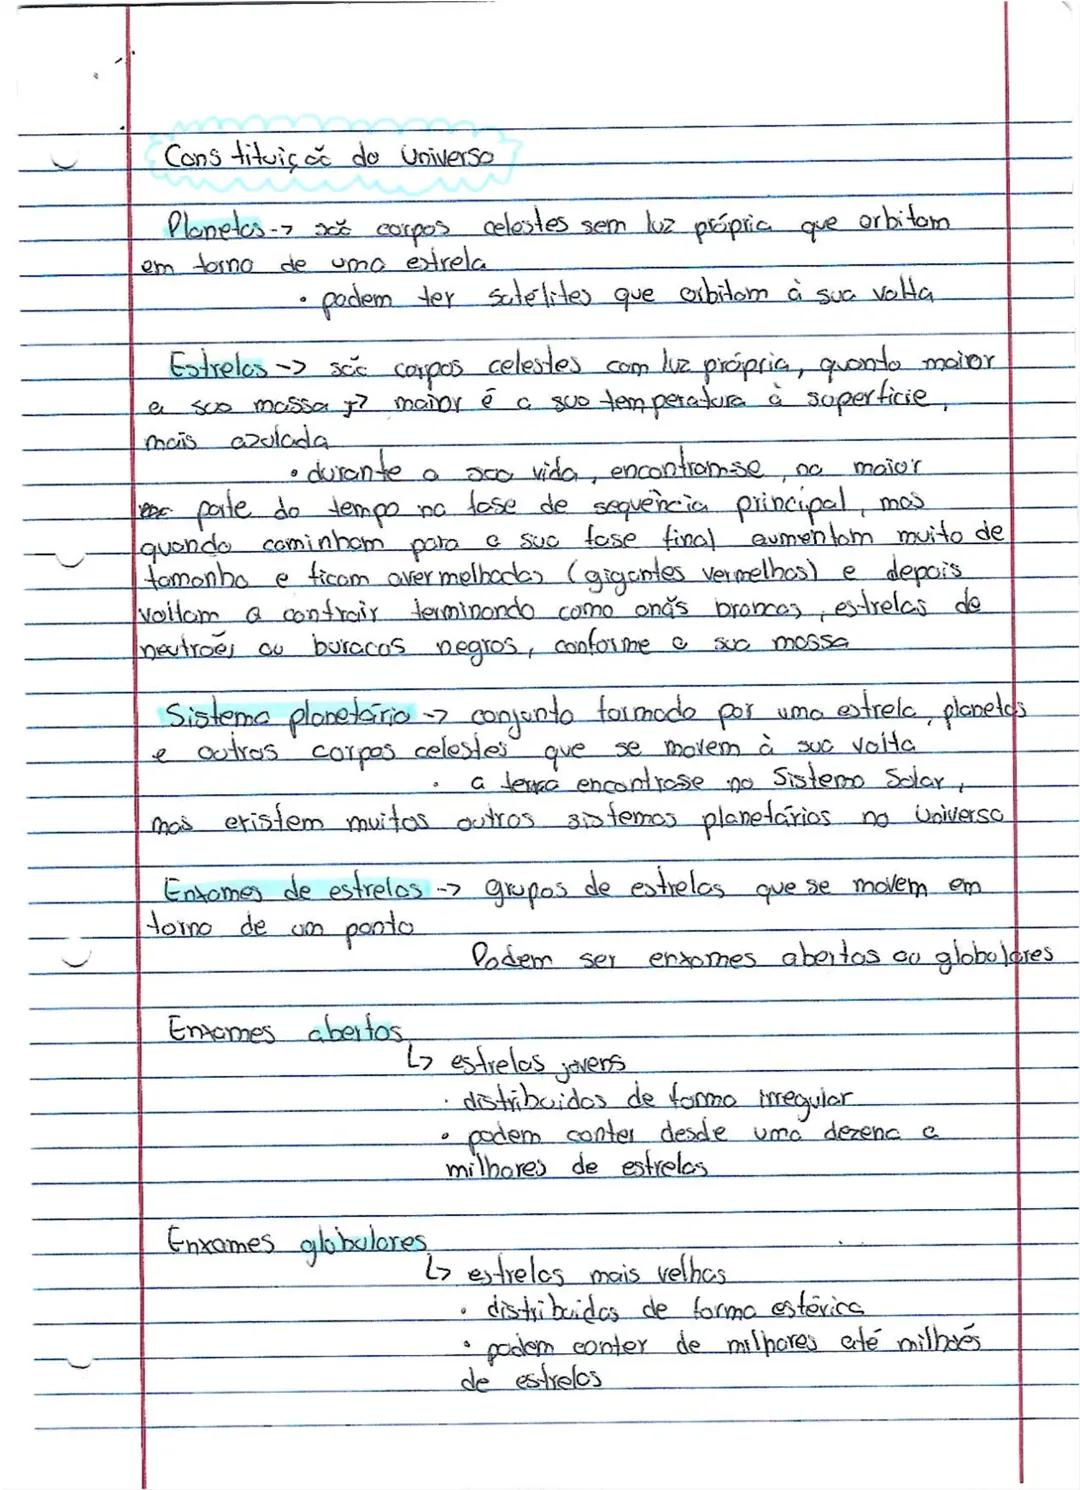 Constituição do Universo
Planetas -> são corpos celestes sem luz própria que orbitam
em torno de uma estrela
• podem ter satélites que orbitam à sua volta
Estrelas -> são corpos celestes com luz própria, quanto maior
a sua massa, maior é a sua temperatura à superfície,
mais azulada
• durante a sua vida, encontram-se, na maior
parte do tempo na fase de sequência principal, mas
quando caminham para a sua fase final aumentam muito de
tamanho e ficam avermelhadas (gigantes vermelhas) e depois
voltam a contrair terminando como anãs brancas, estrelas de
neutrões ou buracos negros, conforme a sua massa
Sistema planetário -> conjunto formado por uma estrela, planetas
e outros corpos celestes que se movem à sua volta
• a terra encontrase no Sistema Solar,
mas existem muitos outros sistemas planetários no Universo
Enxames de estrelas -> grupos de estrelas que se movem em
torno de um ponto
Podem ser enxames abertos ou globulares
Enxames abertos
↳ estrelas jovens
• distribuidas de forma irregular
• podem conter desde uma dezena a
milhares de estrelas
Enxames globulares
↳ estrelas mais velhas
• distribuidas de forma esférica
• podem conter de milhares até milhões
de estrelas